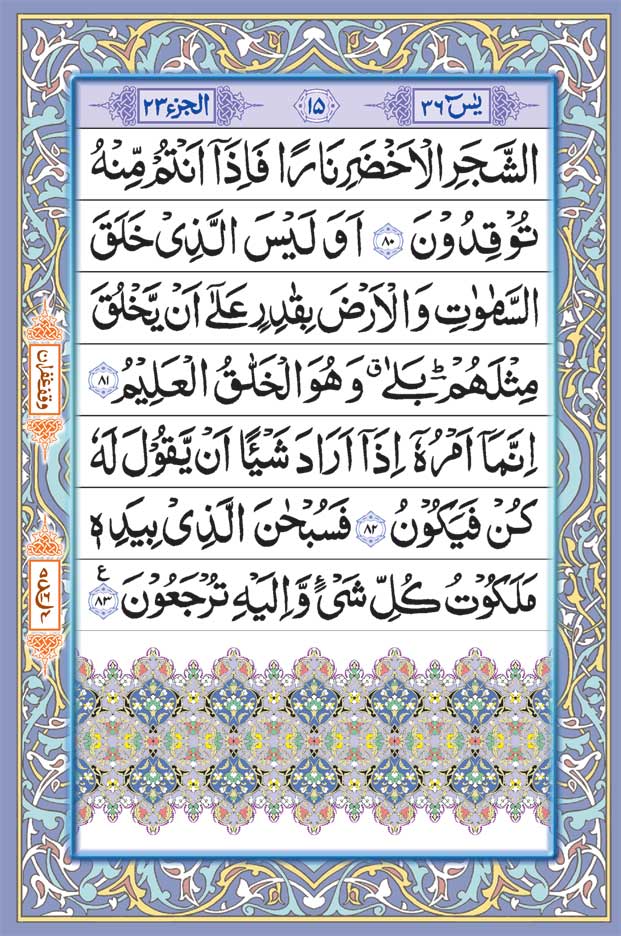 الجزء ٢٣ ١٥ يٰسٓ ٣٦
الشَّجَرِ الْاَخْضَرِ نَارًا فَاِذَاۤ اَنْتُمْ مِّنْهُ
تُوْقِدُوْنَ ﴿٨٠﴾ اَوَ لَيْسَ الَّذِىْ خَلَقَ
السَّمٰوٰتِ وَالْاَرْضَ بِقٰدِرٍ عَلٰٓى اَنْ يَّخْلُقَ
مِثْلَهُمْ ؕ بَلٰى ۗ وَهُوَ الْخَلّٰقُ الْعَلِيْمُ ﴿٨١﴾
اِنَّمَاۤ اَمْرُهٗۤ اِذَاۤ اَرَادَ شَيْـًٔا اَنْ يَّقُوْلَ لَهٗ
كُنْ فَيَكُوْنُ ﴿٨٢﴾ فَسُبْحٰنَ الَّذِىْ بِيَدِهٖ
مَلَكُوْتُ كُلِّ شَىْءٍ وَّاِلَيْهِ تُرْجَعُوْنَ ﴿٨٣﴾ ع
وقف غفران